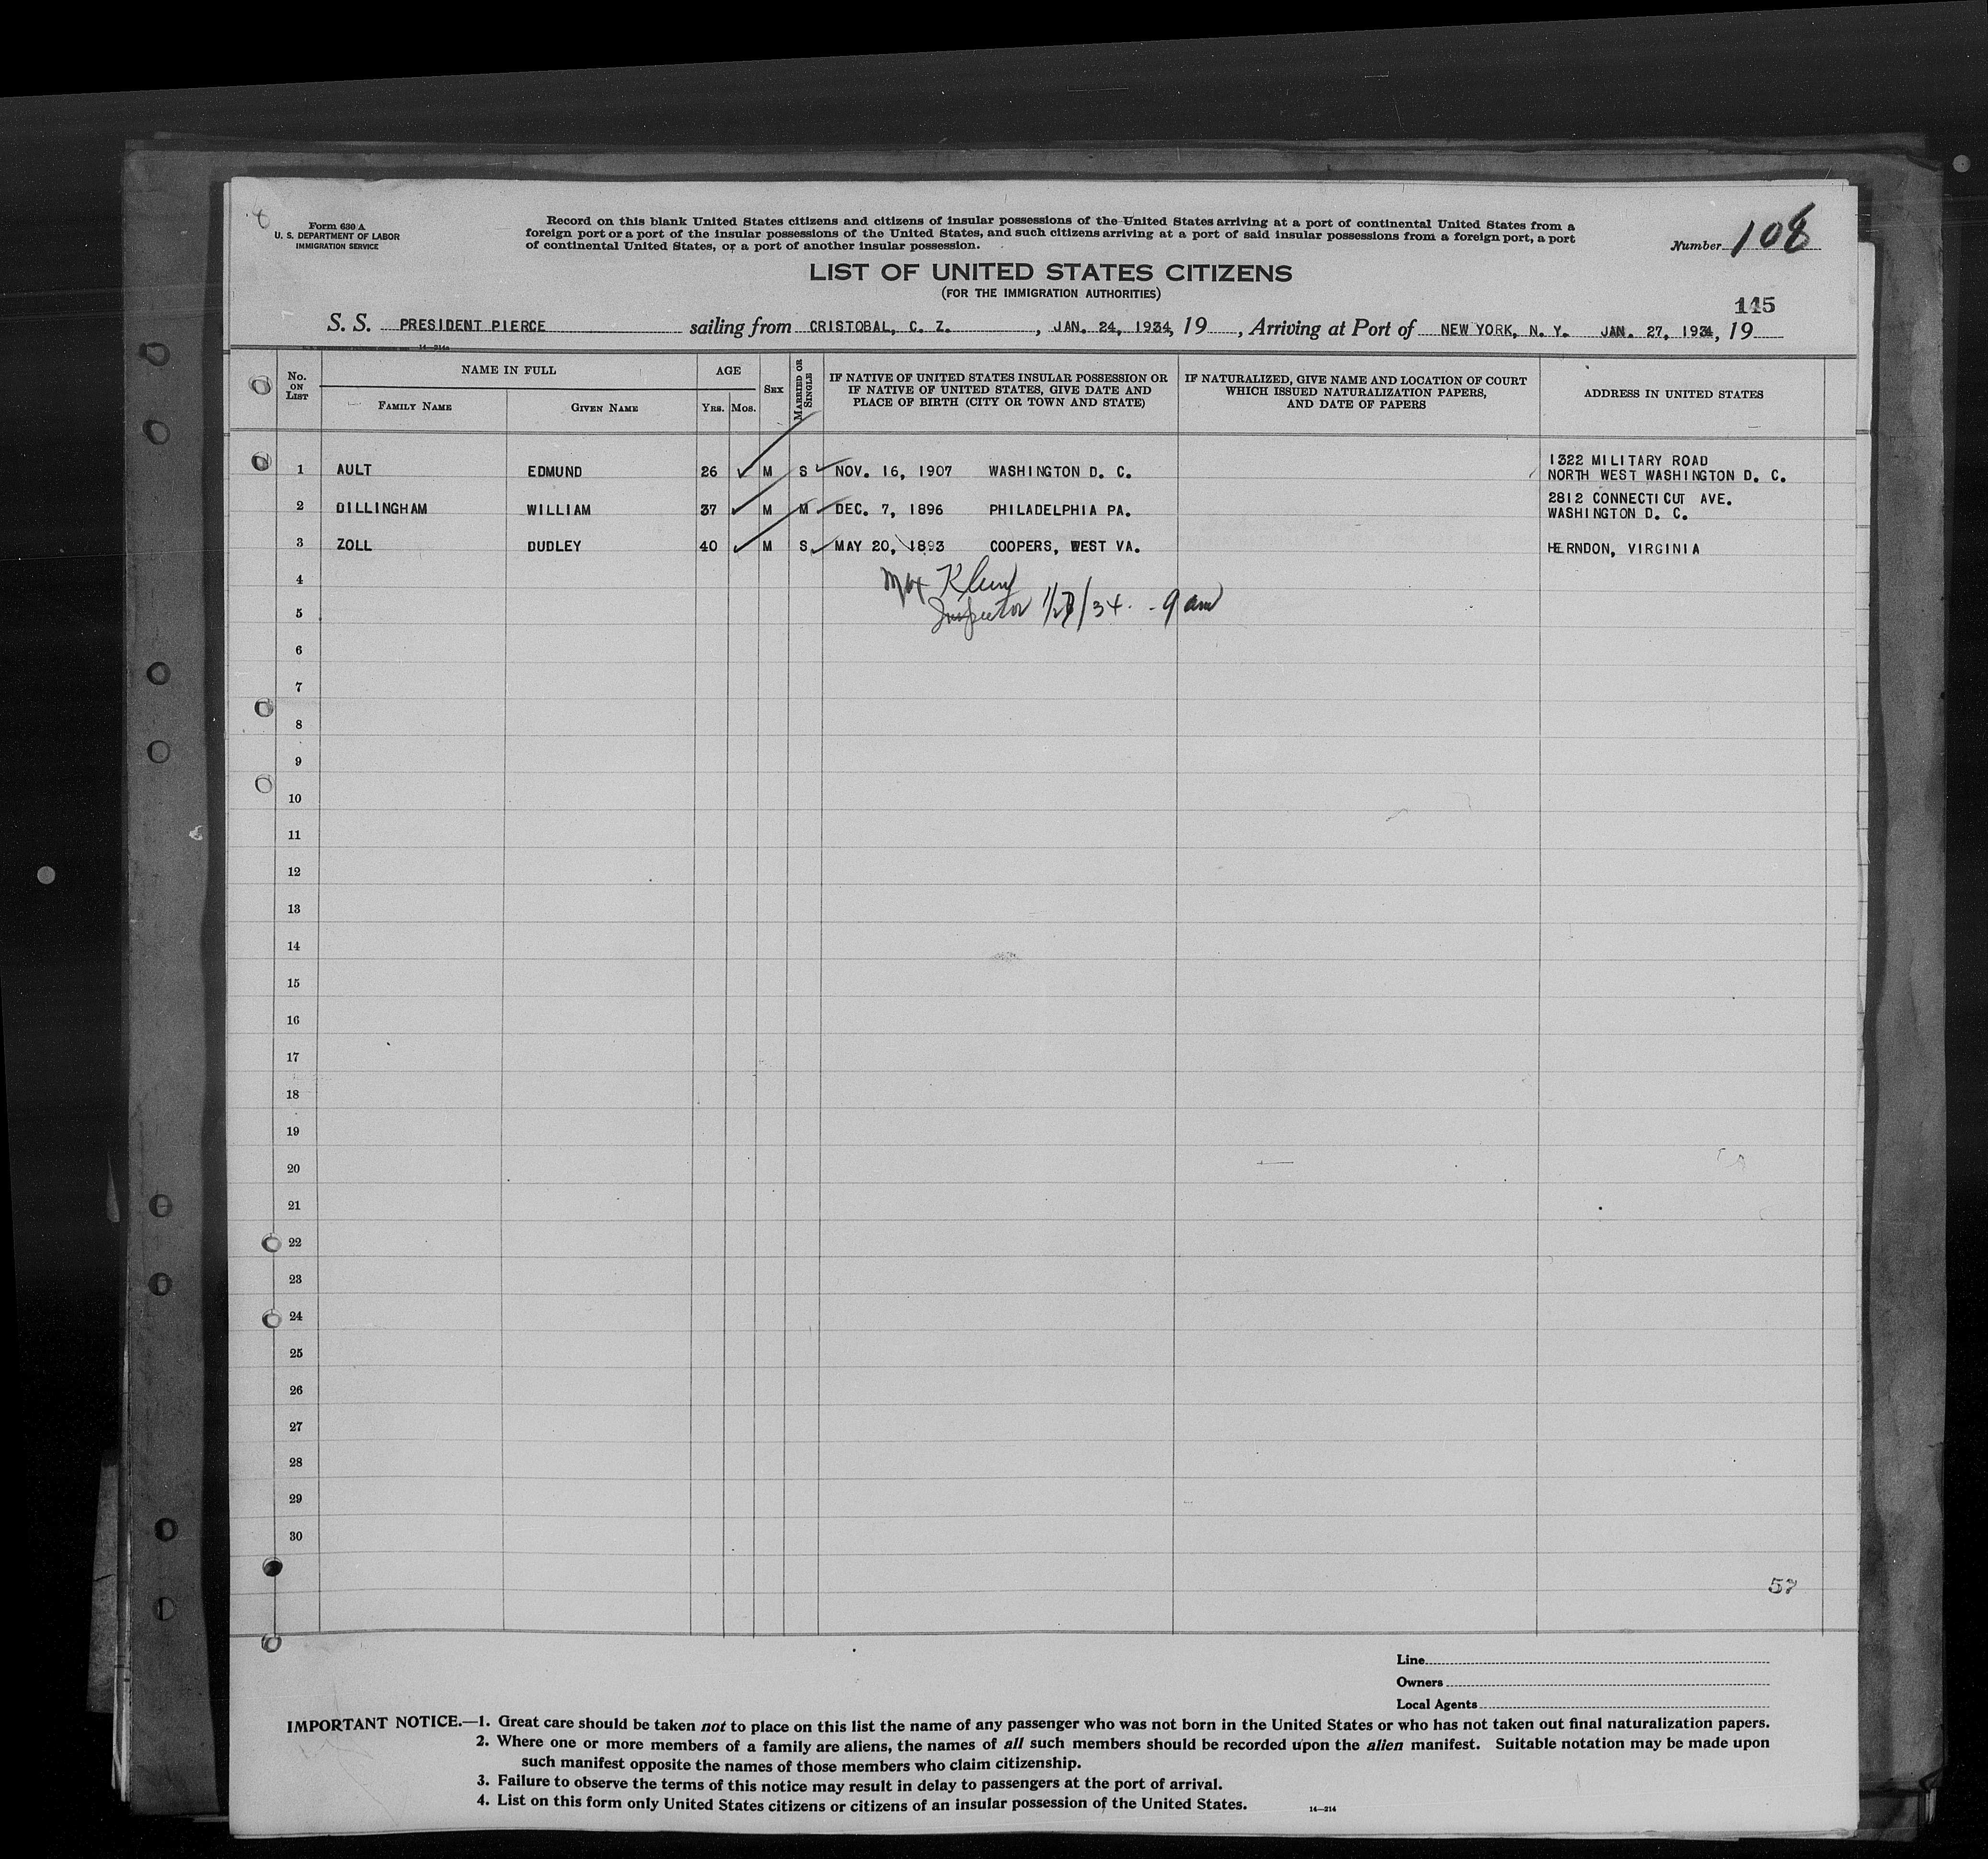 Form 630 A
U. S. DEPARTMENT OF LABOR
IMMIGRATION SERVICE
Record on this blank United States citizens and citizens of insular possessions of the United States arriving at a port of continental United States from a
foreign port or a port of the insular possessions of the United States, and such citizens arriving at a port of said insular possessions from a foreign port, a port
of continental United States, or a port of another insular possession.
Number 108
LIST OF UNITED STATES CITIZENS
(FOR THE IMMIGRATION AUTHORITIES)
145
S. S. PRESIDENT PIERCE sailing from CRISTOBAL, C. Z. , JAN. 24, 1934, 19 , Arriving at Port of NEW YORK, N. Y. JAN. 27, 1934, 19
14—214a
No. ON LIST
NAME IN FULL
FAMILY NAME
GIVEN NAME
AGE
YRS. MOS.
SEX
MARRIED OR SINGLE
IF NATIVE OF UNITED STATES INSULAR POSSESSION OR
IF NATIVE OF UNITED STATES, GIVE DATE AND
PLACE OF BIRTH (CITY OR TOWN AND STATE)
IF NATURALIZED, GIVE NAME AND LOCATION OF COURT
WHICH ISSUED NATURALIZATION PAPERS,
AND DATE OF PAPERS
ADDRESS IN UNITED STATES
1 AULT EDMUND 26 M S NOV. 16, 1907 WASHINGTON D. C. 1322 MILITARY ROAD
NORTH WEST WASHINGTON D. C.
2 DILLINGHAM WILLIAM 37 M M DEC. 7, 1896 PHILADELPHIA PA. 2812 CONNECTICUT AVE.
WASHINGTON D. C.
3 ZOLL DUDLEY 40 M S MAY 20, 1893 COOPERS, WEST VA. HERNDON, VIRGINIA
4 Max
5 Inspector 1/27/34. - 9 am
6
7
8
9
10
11
12
13
14
15
16
17
18
19
20
21
22
23
24
25
26
27
28
29
30
57
Line
Owners
Local Agents
IMPORTANT NOTICE.—1. Great care should be taken not to place on this list the name of any passenger who was not born in the United States or who has not taken out final naturalization papers.
2. Where one or more members of a family are aliens, the names of all such members should be recorded upon the alien manifest. Suitable notation may be made upon
such manifest opposite the names of those members who claim citizenship.
3. Failure to observe the terms of this notice may result in delay to passengers at the port of arrival.
4. List on this form only United States citizens or citizens of an insular possession of the United States.
14—214